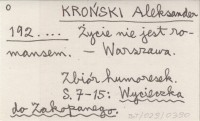 o KROŃSKI Aleksander
192.... Życie nie jest ro-
mansem. – Warszawa.
Zbiór humoresek.
S. 7-15: Wycieczka
do Zakopanego.